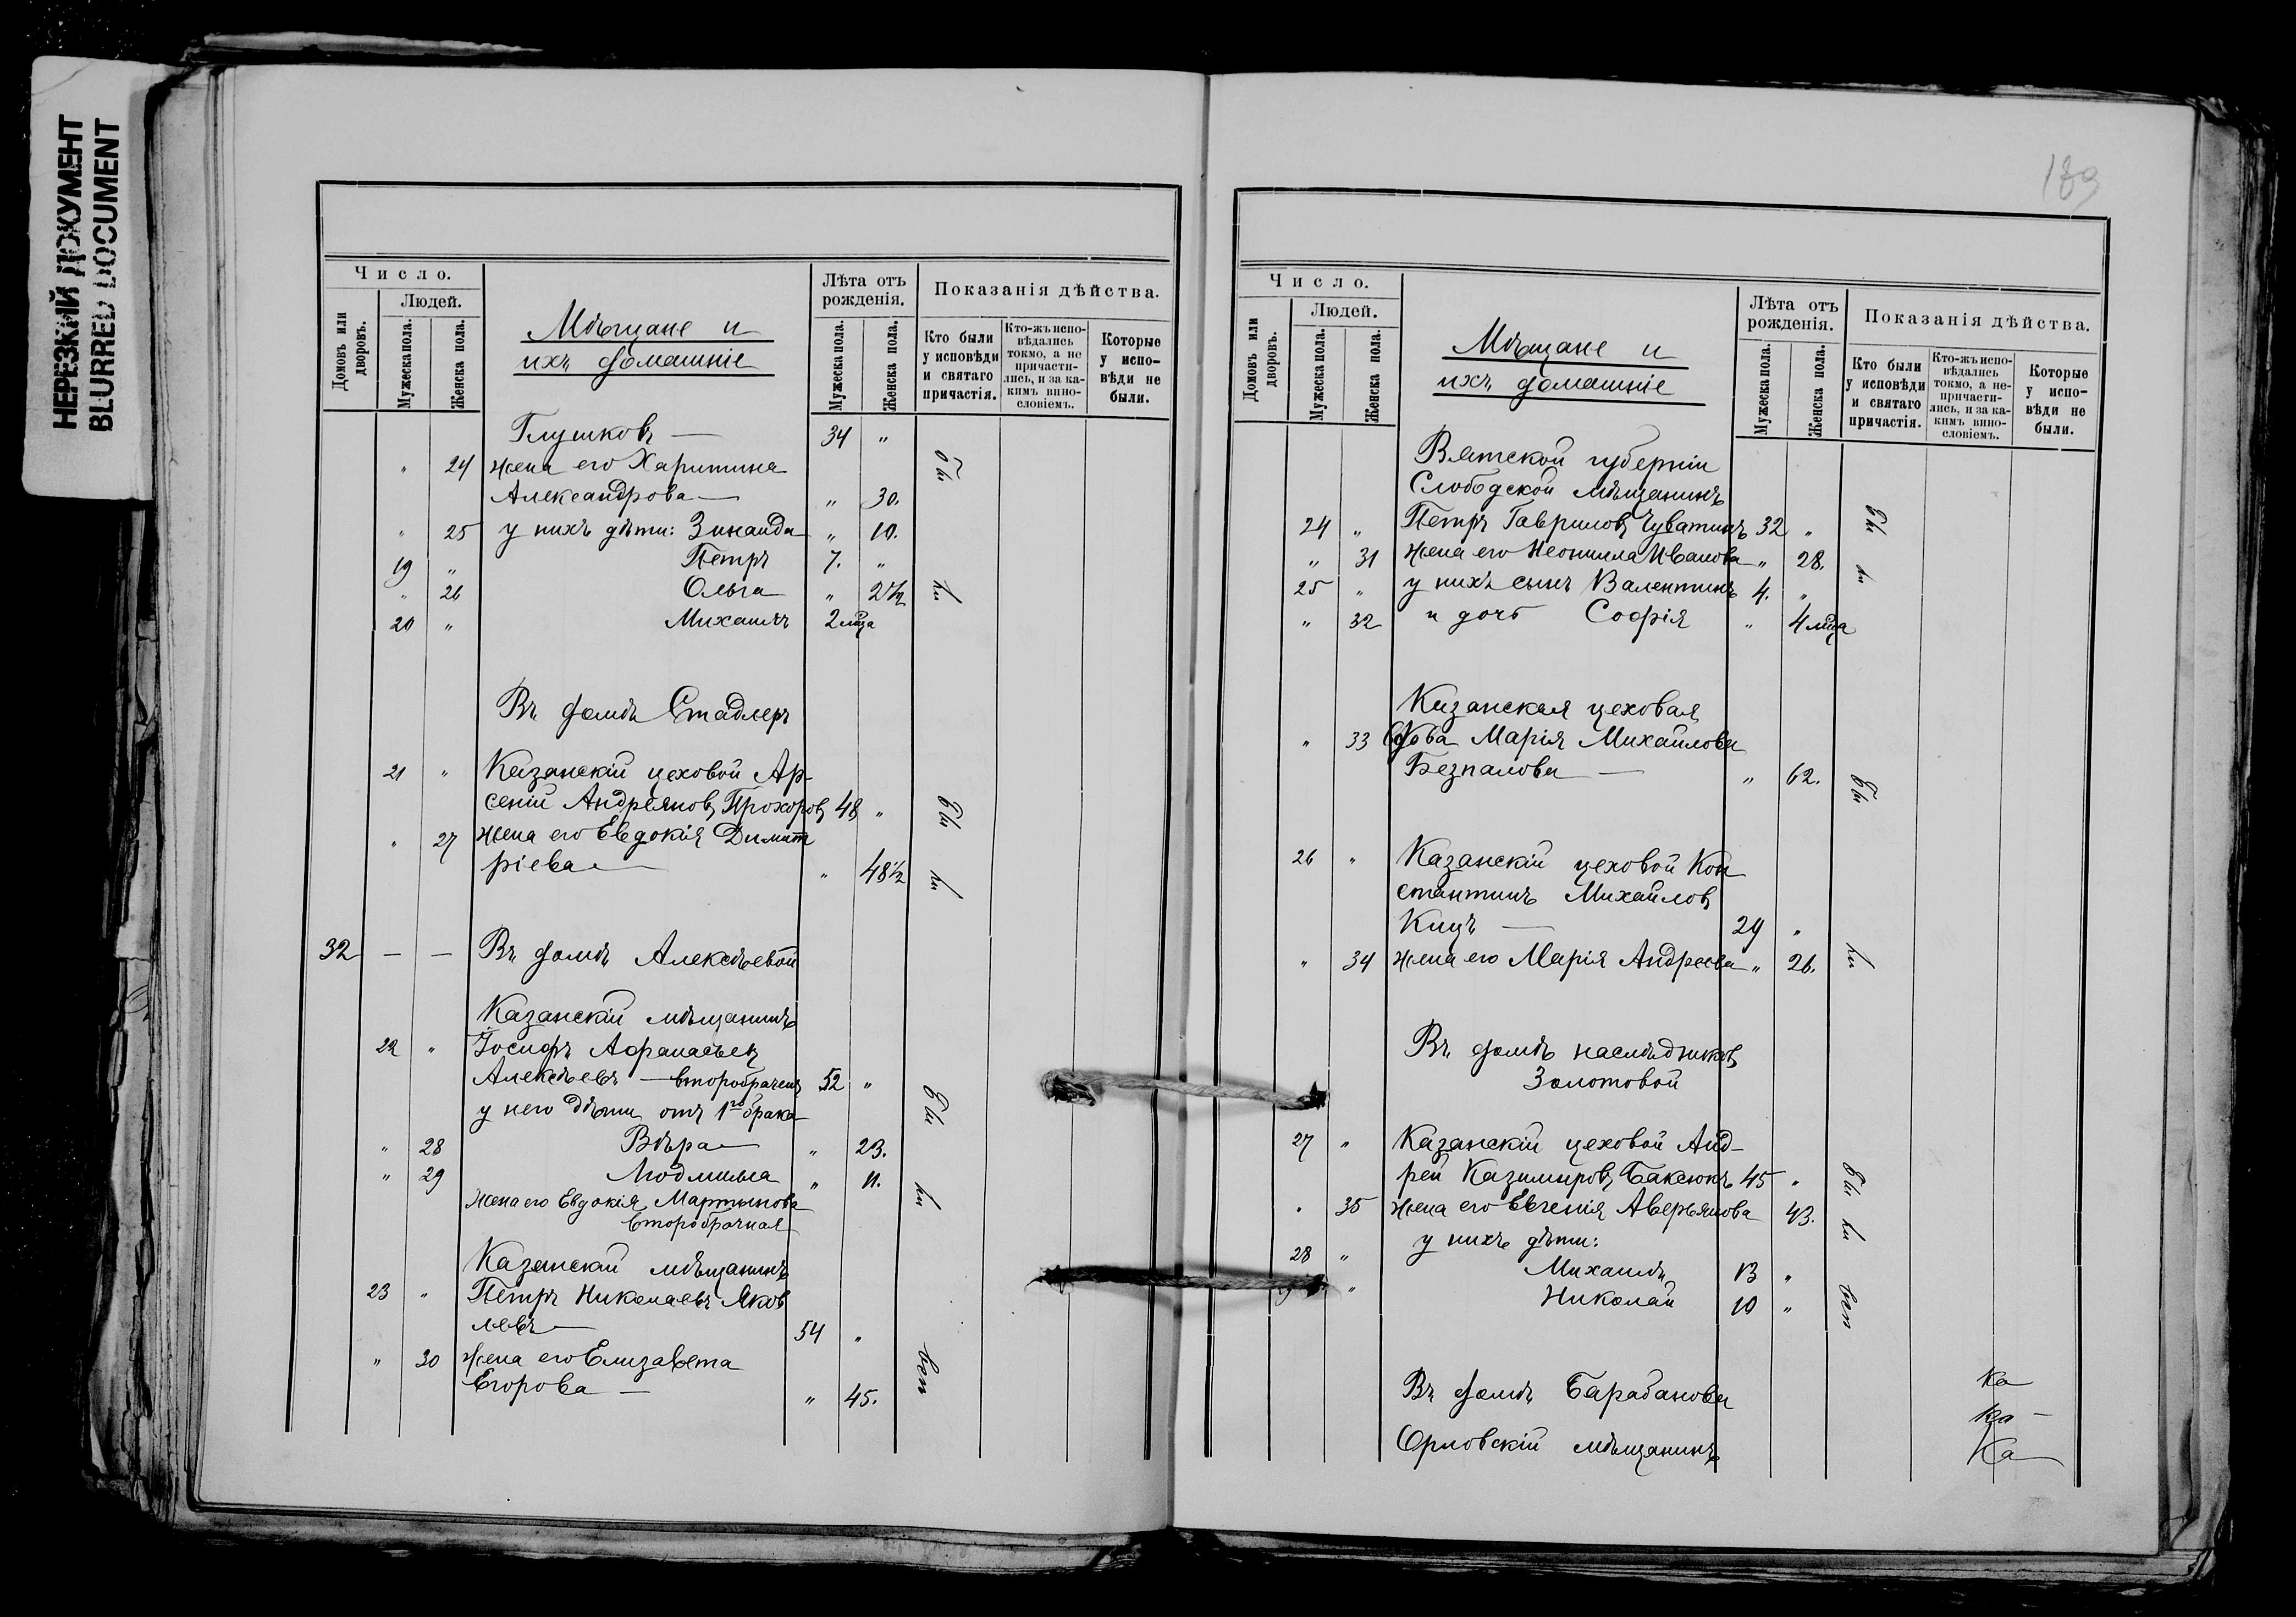 НЕРЕЗКИЙ ДОКУМЕНТ
BLURRED DOCUMENT
Число.
Людей.
Домовъ или дворовъ.
Мужеска пола.
Женска пола.
Мѣщане и
ихъ домашніе
Лѣта отъ рожденія.
Мужеска пола.
Женска пола.
Показанія дѣйства.
Кто были у исповѣди и святаго причастія.
Кто-жъ исповѣдались токмо, а не причастились, и за какимъ винословіемъ.
Которые у исповѣди не были.
Глушковъ — 34 "
" 24 жена его Харитина
Александрова — " 30.
" 25 у нихъ дѣти: Зинаида " 10.
19 " Петръ 7. "
" 26 Ольга " 2 1/2
20 " Михаилъ 2 мца
бы
ли
Въ домѣ Стадлеръ
21 " Казанскій цеховой Ар-
сеній Андреяновъ Прохоровъ 48 "
" 27 жена его Евдокія Димит
ріева — " 48 1/2
бы
ли
32 — — Въ домѣ Алексѣевой
Казанскій мѣщанинъ
22 " Іосифъ Афанасьевъ
Алексѣевъ — второбраченъ 52 "
у него дѣти отъ 1го брака
" 28 Вѣра — " 23.
" 29 Людмила " 11.
жена его Евдокія Мартынова
второбрачная
бы
ли
Казанскій мѣщанинъ
23 " Петръ Николаевъ Яков
левъ — 54 "
" 30 жена его Елизавета
Егорова — " 45.
189
Число.
Людей.
Домовъ или дворовъ.
Мужеска пола.
Женска пола.
Мѣщане и
ихъ домашніе
Лѣта отъ рожденія.
Мужеска пола.
Женска пола.
Показанія дѣйства.
Кто были у исповѣди и святаго причастія.
Кто-жъ исповѣдались токмо, а непричастились, и за какимъ винословіемъ.
Которые у исповѣди не были.
Вятской губерніи
Слободской мѣщанинъ
24 " Петръ Гавриловъ Чуватинъ 32 "
" 31 жена его Неонилла Иванова " 28.
25 " у нихъ сынъ Валентинъ 4. "
" 32 и дочь Софія " 4 мца
бы
ли
Казанская цеховая
" 33 вдова Марія Михайлова
Безпалова — " 62.
бы
26 " Казанскій цеховой Кон
стантинъ Михайловъ
Кицъ — 29 "
" 34 жена его Марія Андреева " 26.
ли
Въ домѣ наслѣдниковъ
Золотовой
27 " Казанскій цеховой Анд-
рей Казимировъ Баксюкъ 45 "
" 35 жена его Евгенія Аверьянова 43.
28 " у нихъ дѣти:
Михаилъ 13 "
" Николай 10 "
бы
ли
Въ домѣ Барабанова
Орловскій мѣщанинъ
ка
ка —
ка